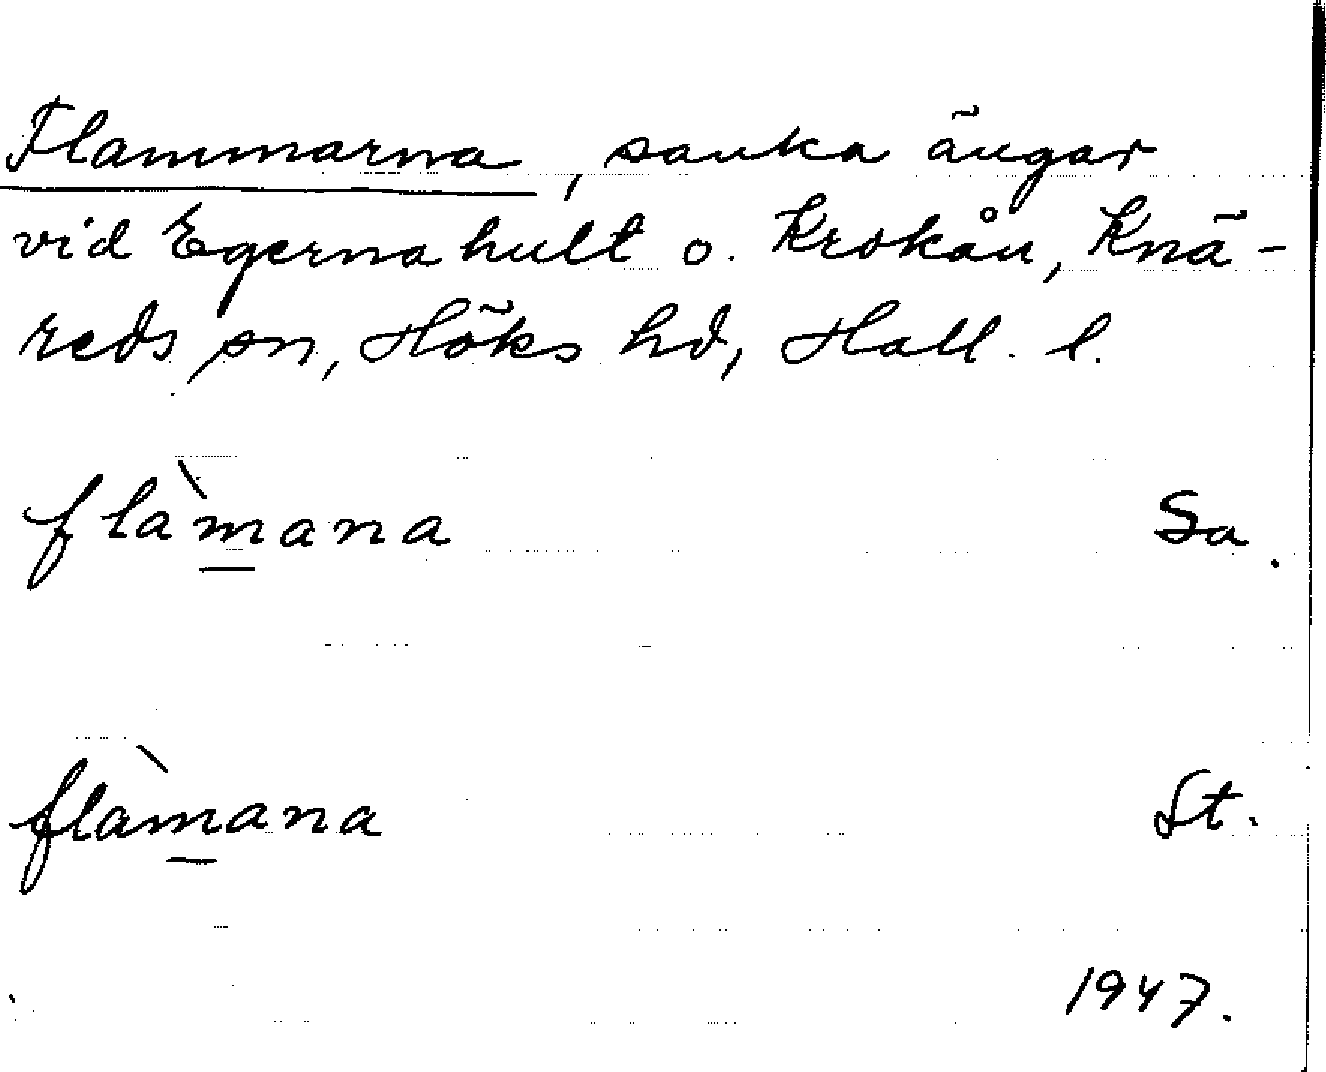 Flammarna, sanka ängar
vid Egernahult o. Krokån, Knä-
reds sn, Höks hd, Hall. l.
flàmana Sa.
flàmana St.
1947.